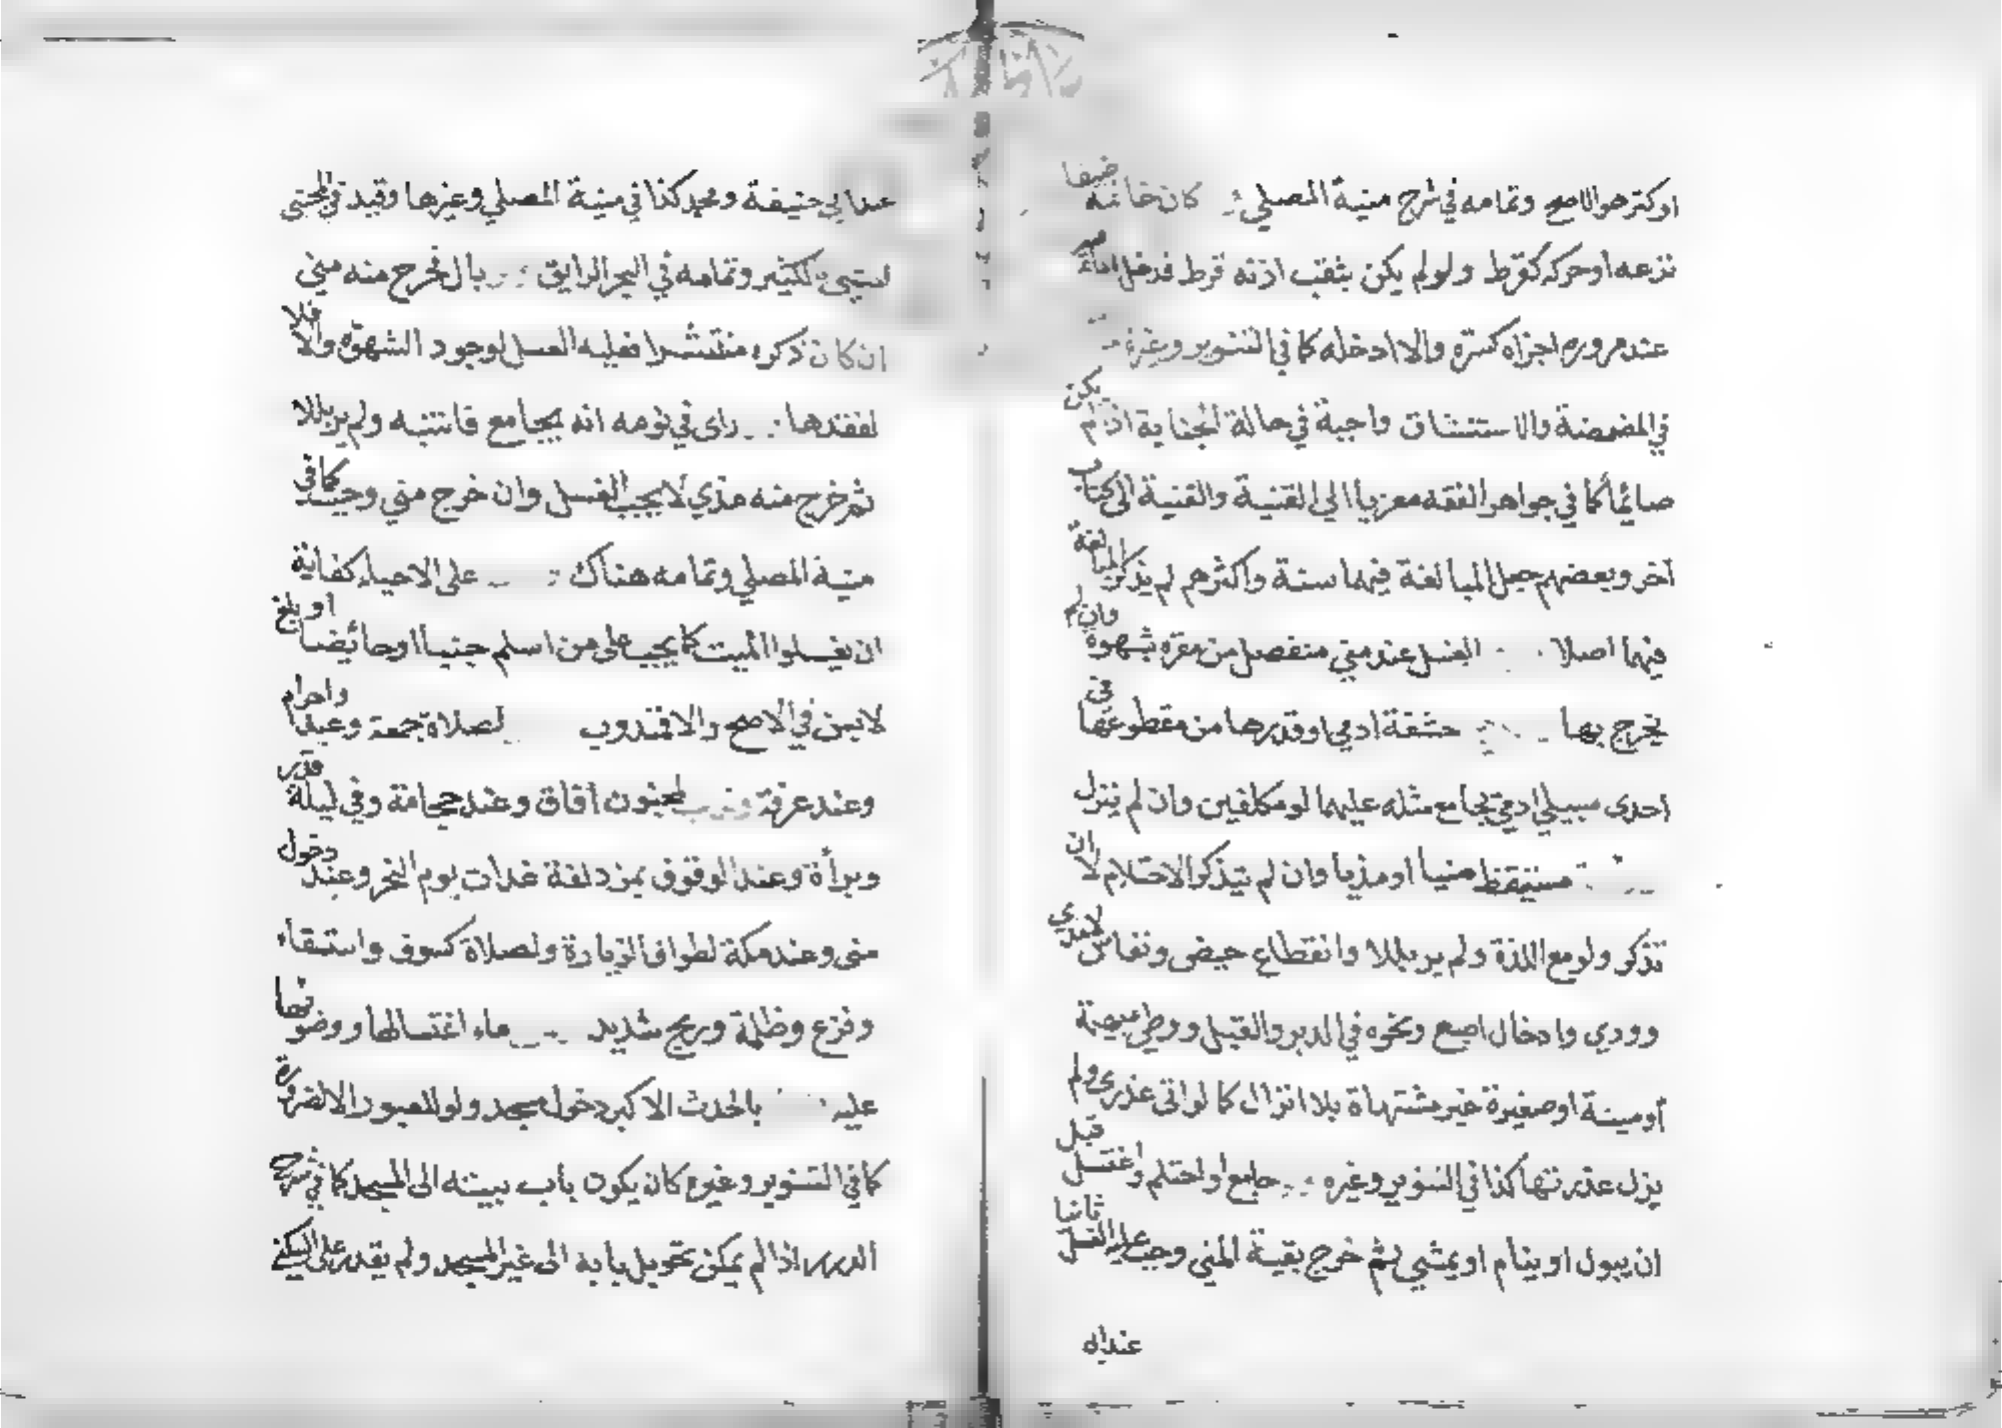 او كثر هو الاصح وتمامه في شرح منية المصلي كان خاتمه ضيقا
نزعه او حركه كقرط ولو لم يكن بثقب اذنه قرط فدخل الماء فيه
عند مروره اجزاه كسرة والا ادخله كما في التنوير وغيره
في المضمضة والاستنشاق واجبة في حالة الجنابة اذا لم يكن
صائما كما في جواهر الفقه معزيا الي القنية والقنية الى كتاب
آخر وبعضهم جعل المبالغة فيهما سنة واكثرهم لم يذكر المبالغة
فيهما اصلا الغسل عند مني منفصل من مقره بشهوة وان لم
يخرج بها حشفة ادمي او قدرها من مقطوعها في
احدى سبيلي ادمي يجامع مثله عليهما لو مكلفين وان لم ينزل
مستيقظ منيا او مذيا وان لم يتذكر الاحتلام لا ان
تذكر ولو مع اللذة ولم ير بللا وانقطاع حيض ونفاس لا مذي
وودي وادخال اصبع ونحوه في الدبر والقبل ووطي بهيمة
أو ميتة او صغيرة غير مشتهاة بلا انزال كما لو اتى عذرى ولم
يزل عذرتها كذا في التنوير وغيره جامع او احتلم واغتسل قبل
ان يبول او ينام او يمشي ثم خرج بقية المني وجب عليه الغسل ثانيا
عند ابي
عند ابي حنيفة ومحمد كذا في منية المصلي وغيرها وقيد في المجتبى
المشي بالكثير وتمامه في البحر الرايق بال فخرج منه مني
ان كان ذكره منتشرا فعليه الغسل لوجود الشهوة والا فلا
لفقدها راى في نومه انه يجامع فانتبه ولم ير بللا
ثم خرج منه مذي لا يجب الغسل وان خرج مني وجب كما في
منية المصلي وتمامه هناك على الاحياء كفاية
ان يغسلوا الميت كما يجب على من اسلم جنبا او حائضا او بلغ
لا بسن في الاصح والا فمندوب لصلاة جمعة وعيد واحرام
وعند عرفة وندب لمجنون أفاق وعند حجامة وفي ليلة قدر
وبرأة وعند الوقوف بمزدلفة غداة يوم النحر وعند دخول
منى وعند مكة لطواف الزيارة ولصلاة كسوف واستسقاء
وفزع وظلمة وريح شديد ماء اغتسالها ووضوئها
عليه بالحدث الاكبر دخول مسجد ولو للعبور الا لضرورة
كما في التنوير وغيره كان يكون باب بيته الى المسجد كما في شرح
الدرر اذا لم يمكن تحويل بابه الى غير المسجد ولم يقدر على السكنى